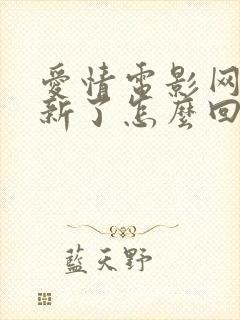 愛情電影网
新了怎麼回
藍天野